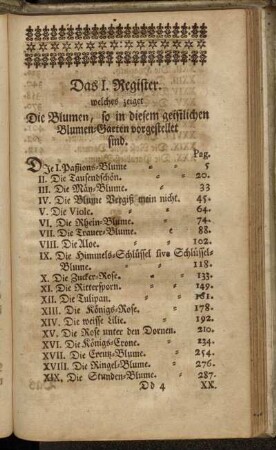 Das I. Register.
welches zeiget
Die Blumen, so in diesem geistlichen
Blumen-Garten vorgestellet
sind.
Pag.
DIe I. Passions-Blume 5
II. Die Tausendschön. 20.
III. Die Mäy-Blume. 33
IV. Die Blume Vergiß mein nicht. 45.
V. Die Viole. 64.
VI. Die Rhein-Blume. 74.
VII. Die Trauer-Blume. 88.
VIII. Die Aloe. 102.
IX. Die Himmels-Schlüssel sive Schlüssel-
Blume. 118.
X. Die Zucker-Rose. 133.
XI. Die Rittersporn. 149.
XII. Die Tulipan. 161.
XIII. Die Königs-Rose. 178.
XIV. Die weisse Lilie. 192.
XV. Die Rose unter den Dornen. 210.
XVI. Die Königs-Crone. 234.
XVII. Die Creutz-Blume. 254.
XVIII. Die Ringel-Blume. 276.
XIX. Die Stunden-Blume. 287.
Dd 4 XX.